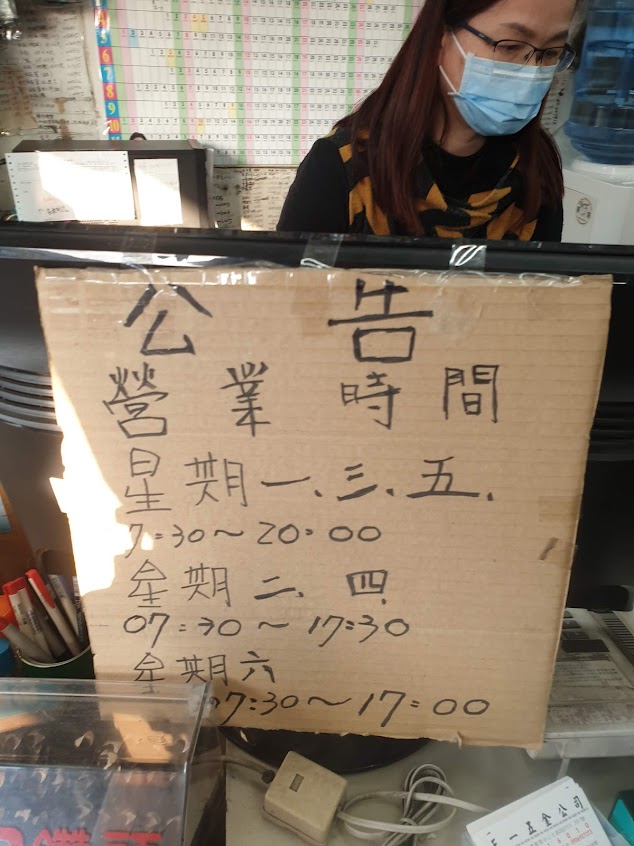 公告
營業時間
星期一、三、五、
7:30～20:00
星期二、四
07:30～17:30
星期六
07:30～17:00
一五金公司